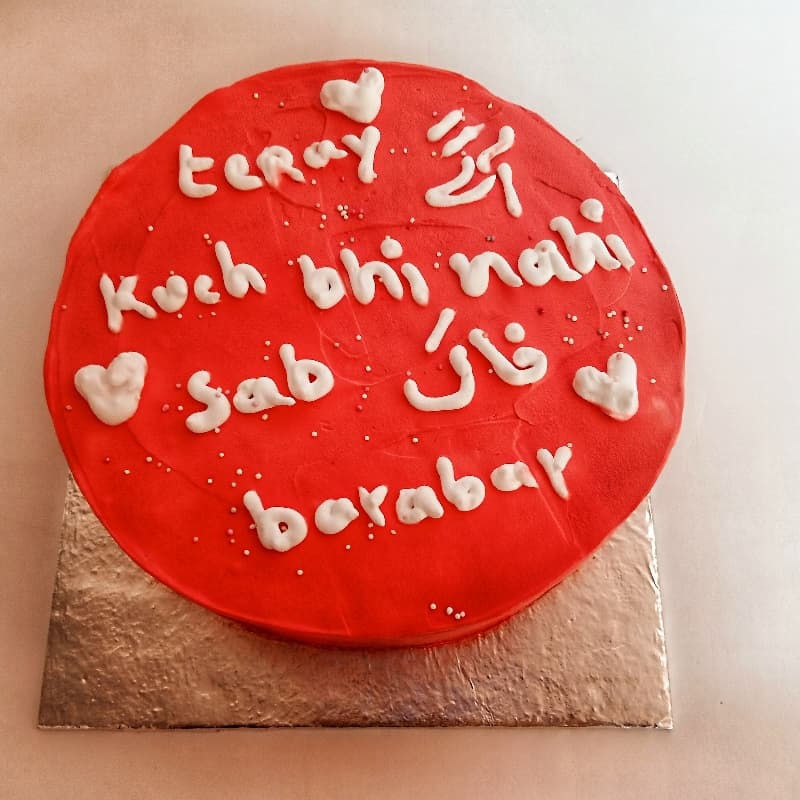 teray آگے
kuch bhi nahi
sab خاک
barabar